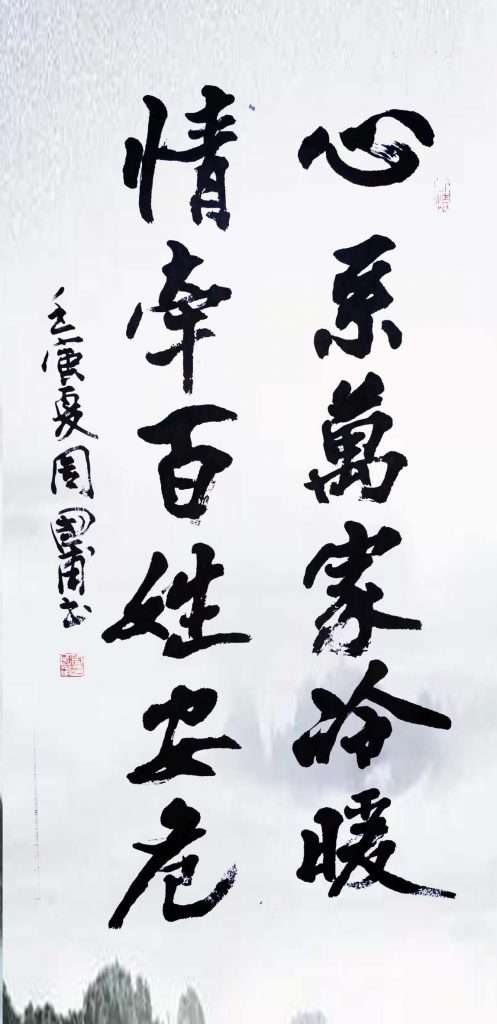 心系萬家冷暖
情牽百姓安危
壬寅夏周國甫书